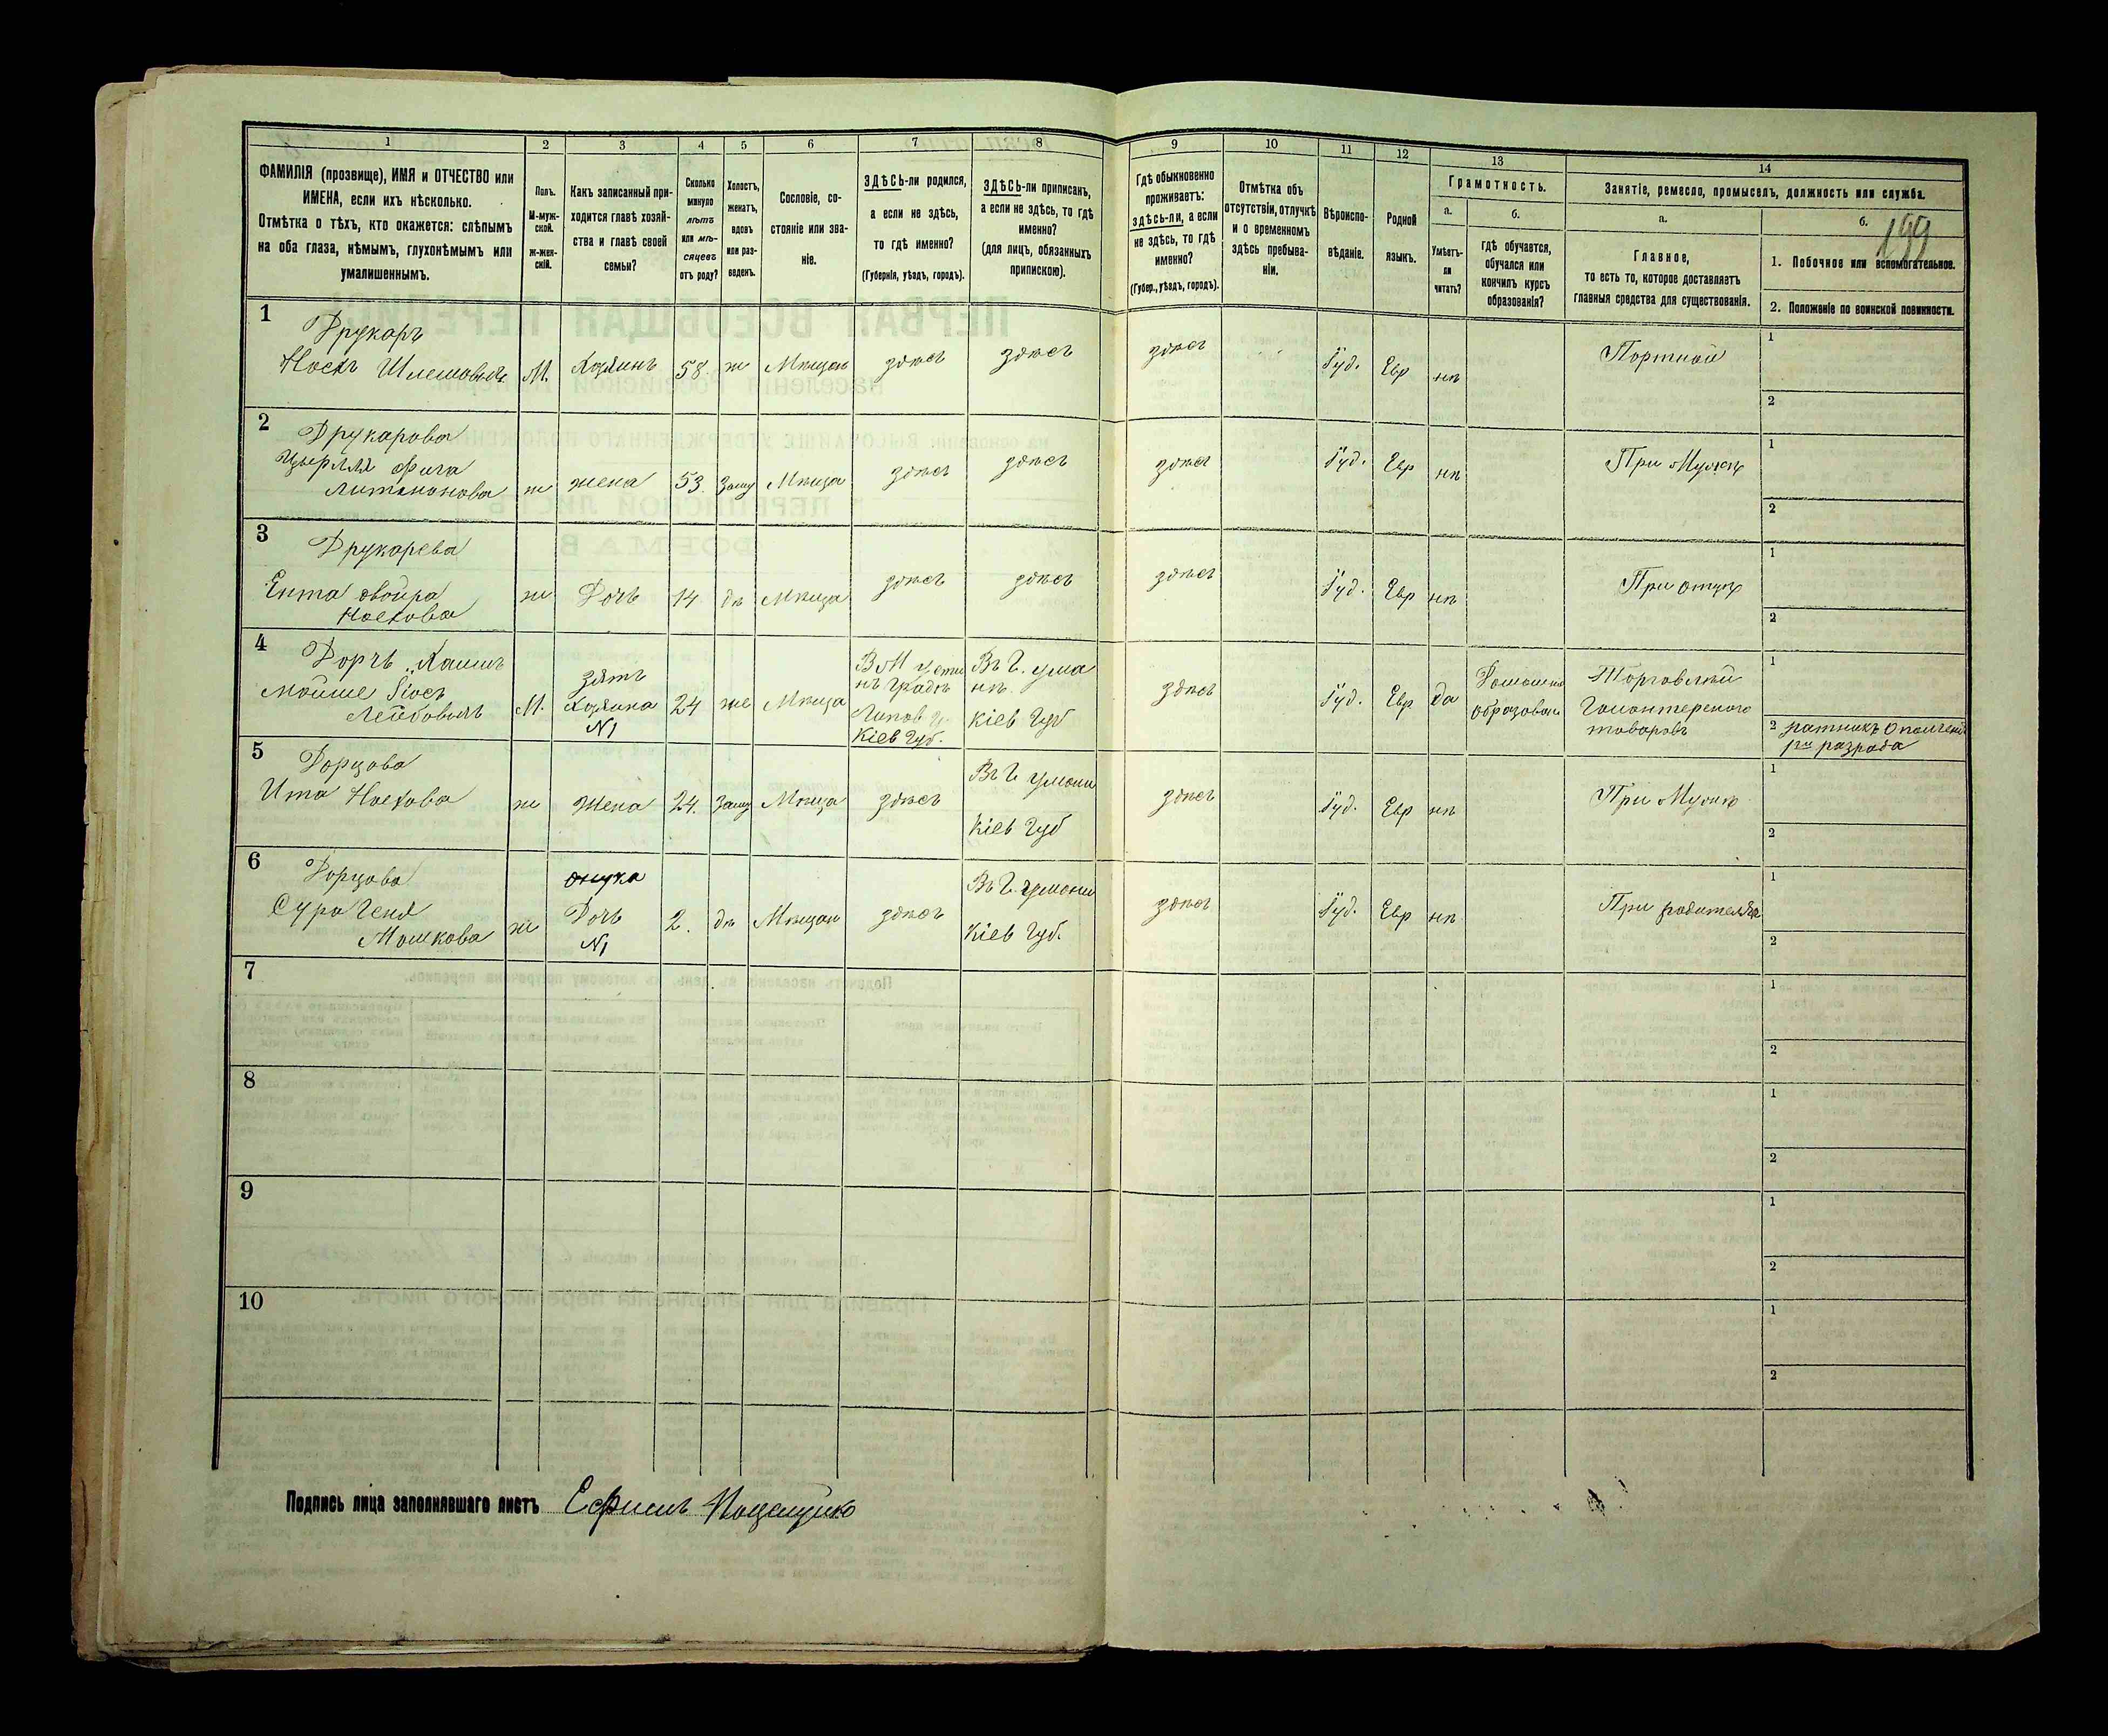 1 2 3 4 5 6 7 8 9 10 11 12 13 14
ФАМИЛІЯ (прозвище), ИМЯ и ОТЧЕСТВО или
ИМЕНА, если ихъ нѣсколько.
Отмѣтка о тѣхъ, кто окажется: слѣпымъ
на оба глаза, нѣмымъ, глухонѣмымъ или
умалишеннымъ.
Полъ.
М-муж-
ской.
Ж-жен-
скій.
Какъ записанный при-
ходится главѣ хозяй-
ства и главѣ своей
семьи?
Сколько
минуло
лѣтъ
или мѣ-
сяцевъ
отъ роду?
Холостъ,
женатъ,
вдовъ
или раз-
веденъ.
Сословіе, со-
стояніе или зва-
ніе.
ЗДѢСЬ-ли родился,
а если не здѣсь,
то гдѣ именно?
(Губернія, уѣздъ, городъ).
ЗДѢСЬ-ли приписанъ,
а если не здѣсь, то гдѣ
именно?
(для лицъ, обязанныхъ
припискою).
Гдѣ обыкновенно
проживаетъ:
здѣсь-ли, а если
не здѣсь, то гдѣ
именно?
(Губер., уѣздъ, городъ).
Отмѣтка объ
отсутствіи, отлучкѣ
и о временномъ
здѣсь пребыва-
ніи.
Вѣроиспо-
вѣданіе.
Родной
языкъ.
Грамотность.
а.
Умѣетъ-
ли
читать?
б.
Гдѣ обучается,
обучался или
кончилъ курсъ
образованія?
Занятіе, ремесло, промыселъ, должность или служба.
а.
Главное,
то есть то, которое доставляетъ
главныя средства для существованія.
б.
199
1. Побочное или вспомогательное.
2. Положеніе по воинской повинности.
1
Друкаръ
М. Хозяинъ 58. ж Мѣщан здѣсь здѣсь здѣсь Іуд. Евр нѣ Портной
1
2
2
Друкарова
ж жена 53. Заму Мѣща здѣсь здѣсь здѣсь Іуд. Евр нѣ При Мужѣ
1
2
3
Друкарева
Ента двойра
Носкова
ж Дочъ 14 дѣ Мѣща здѣсь здѣсь здѣсь Іуд. Евр нѣ При отцѣ
1
2
4
Лейбовичъ
М. зять
Хозяина
N1
24 же Мѣща
Липов у.
Кіев Губ.
Въ Г. ума
нѣ.
Кіев Губ
здѣсь Іуд. Евр да
Домашне
образован
Торговлей
Галантереного
товаровъ
1
2 ратникъ Ополчені
разрада
5
Дорцова
Ита Носкова
ж Жена 24. Заму Мѣща здѣсь
Въ Г. Умани
Кіев Губ
здѣсь Іуд. Евр нѣ При Мужѣ
1
2
6
Дорцова
Сура Геня
Мошкова
ж
онука
Дочь
N1
2. дѣ Мѣщан здѣсь
Въ Г. Умани
Кіев Губ.
здѣсь Іуд. Евр нѣ При родителях
1
2
7
1
2
8
1
2
9
1
2
10
1
2
Подпись лица заполнявшаго листъ Ефимъ